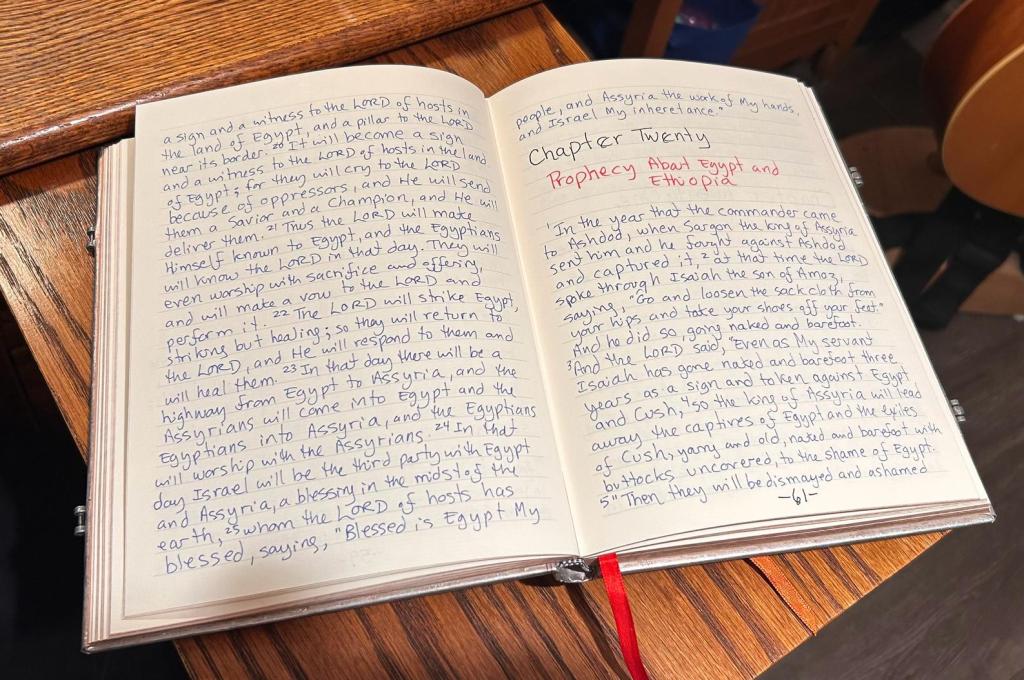 a sign and a witness to the LORD of hosts in
the land of Egypt, and a pillar to the LORD
near its border. 20 It will become a sign
and a witness to the LORD of hosts in the land
of Egypt; for they will cry to the LORD
because of oppressors, and He will send
them a Savior and a Champion, and He will
deliver them. 21 Thus the LORD will make
Himself known to Egypt, and the Egyptians
will know the LORD in that day. They will
even worship with sacrifice and offering,
and will make a vow to the LORD and
perform it. 22 The LORD will strike Egypt,
striking but healing; so they will return to
the LORD, and He will respond to them and
will heal them. 23 In that day there will be a
highway from Egypt to Assyria, and the
Assyrians will come into Egypt and the
Egyptians into Assyria, and the Egyptians
will worship with the Assyrians. 24 In that
day Israel will be the third party with Egypt
and Assyria, a blessing in the midst of the
earth, 25 whom the LORD of hosts has
blessed, saying, "Blessed is Egypt My
people, and Assyria the work of My hands,
and Israel My inheretance."
Chapter Twenty
Prophecy About Egypt and
Ethiopia
1 In the year that the commander came
to Ashdod, when Sargon the king of Assyria
sent him and he fought against Ashdod
and captured it, 2 at that time the LORD
spoke through Isaiah the son of Amoz,
saying, "Go and loosen the sackcloth from
your hips and take your shoes off your feet."
And he did so, going naked and barefoot.
3 And the LORD said, "Even as My servant
Isaiah has gone naked and barefoot three
years as a sign and token against Egypt
and Cush, 4 so the king of Assyria will lead
away the captives of Egypt and the exiles
of Cush, young and old, naked and barefoot with
buttocks uncovered, to the shame of Egypt.
5 "Then they will be dismayed and ashamed
-61-